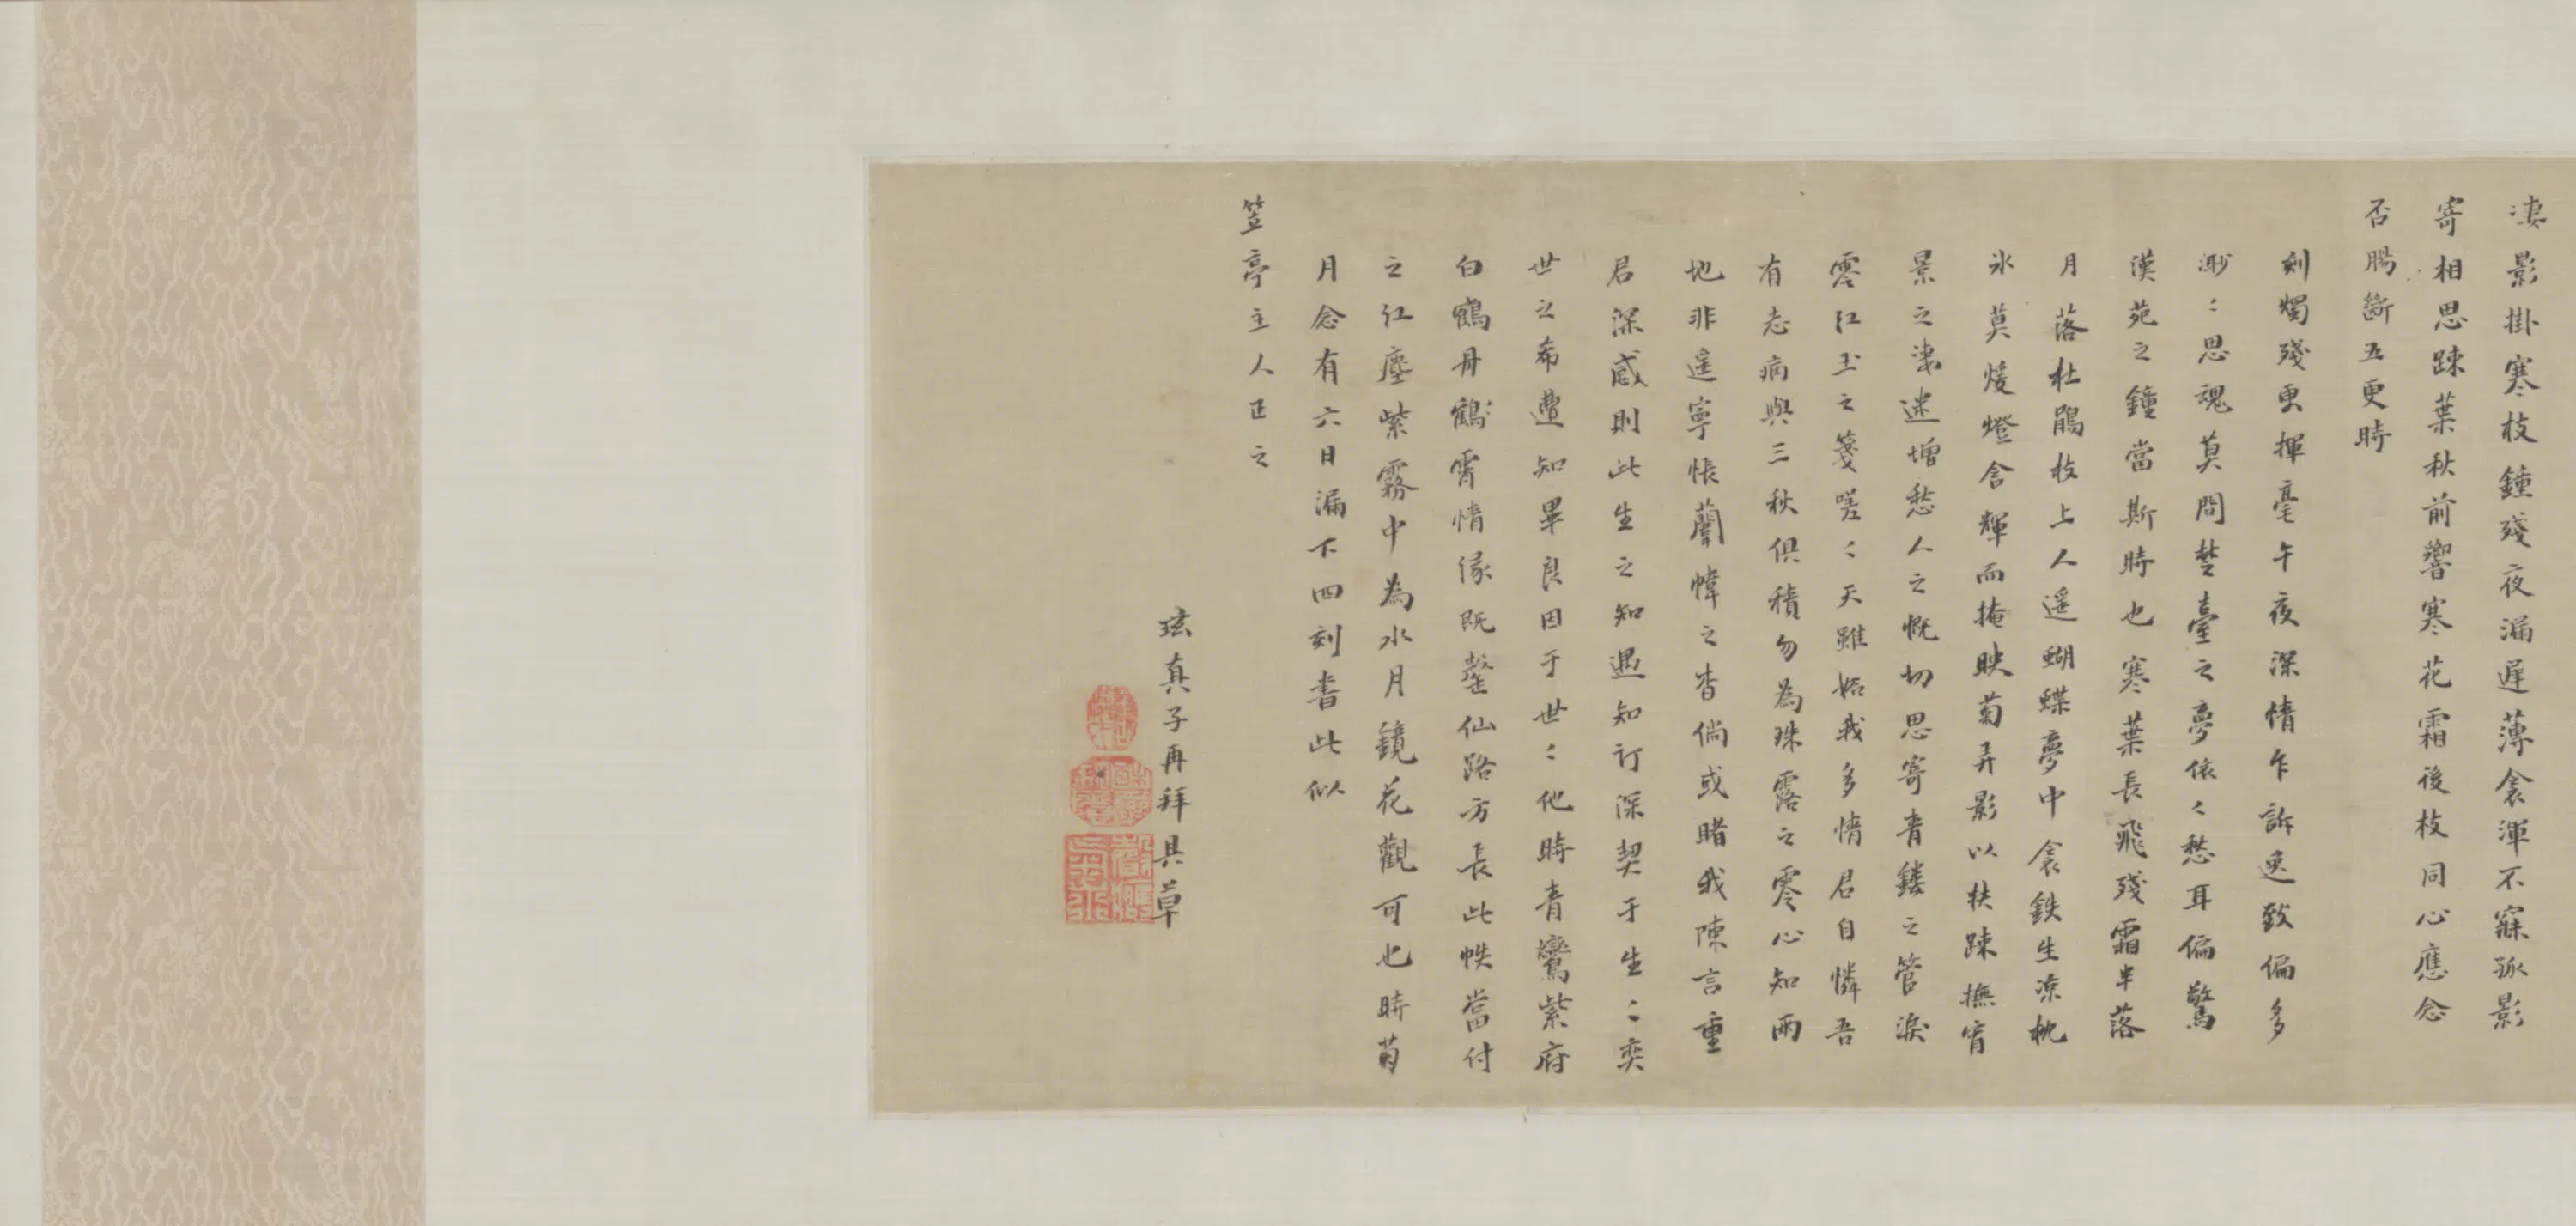 淒影掛寒枝鐘殘夜漏遲薄衾渾不寐孤影
寄相思踈葉秋前響寒花霜後枝同心應念
否腸斷五更時
刻燭殘更揮毫午夜深情乍訴逸致偏多
渺〻思魂莫問楚臺之夢依〻愁耳偏驚
漢苑之鐘當斯時也寒葉長飛殘霜半落
月落杜鵑枝上人遥蝴蝶夢中衾鉄生涼枕
氷莫煖燈含輝而掩映菊弄影以扶踈撫宵
景之淒迷增愁人之慨切思寄青鏤之管淚
零紅玉之箋嗟〻天雖妬我多情君自憐吾
有志病與三秋俱積勿為珠露之零心知兩
地非遥寧悵蘭幃之杳倘或睹我陳言重
君深感則此生之知遇知訂深契于生〻奕
世之希遭知畢良因于世〻他時青鸞紫府
白鶴丹霄情緣既罄仙路方長此帙當付
之紅塵紫霧中為水月鏡花觀可也時菊
月念有六日漏下四刻書此似
笠亭主人正之
玹真子再拜具草